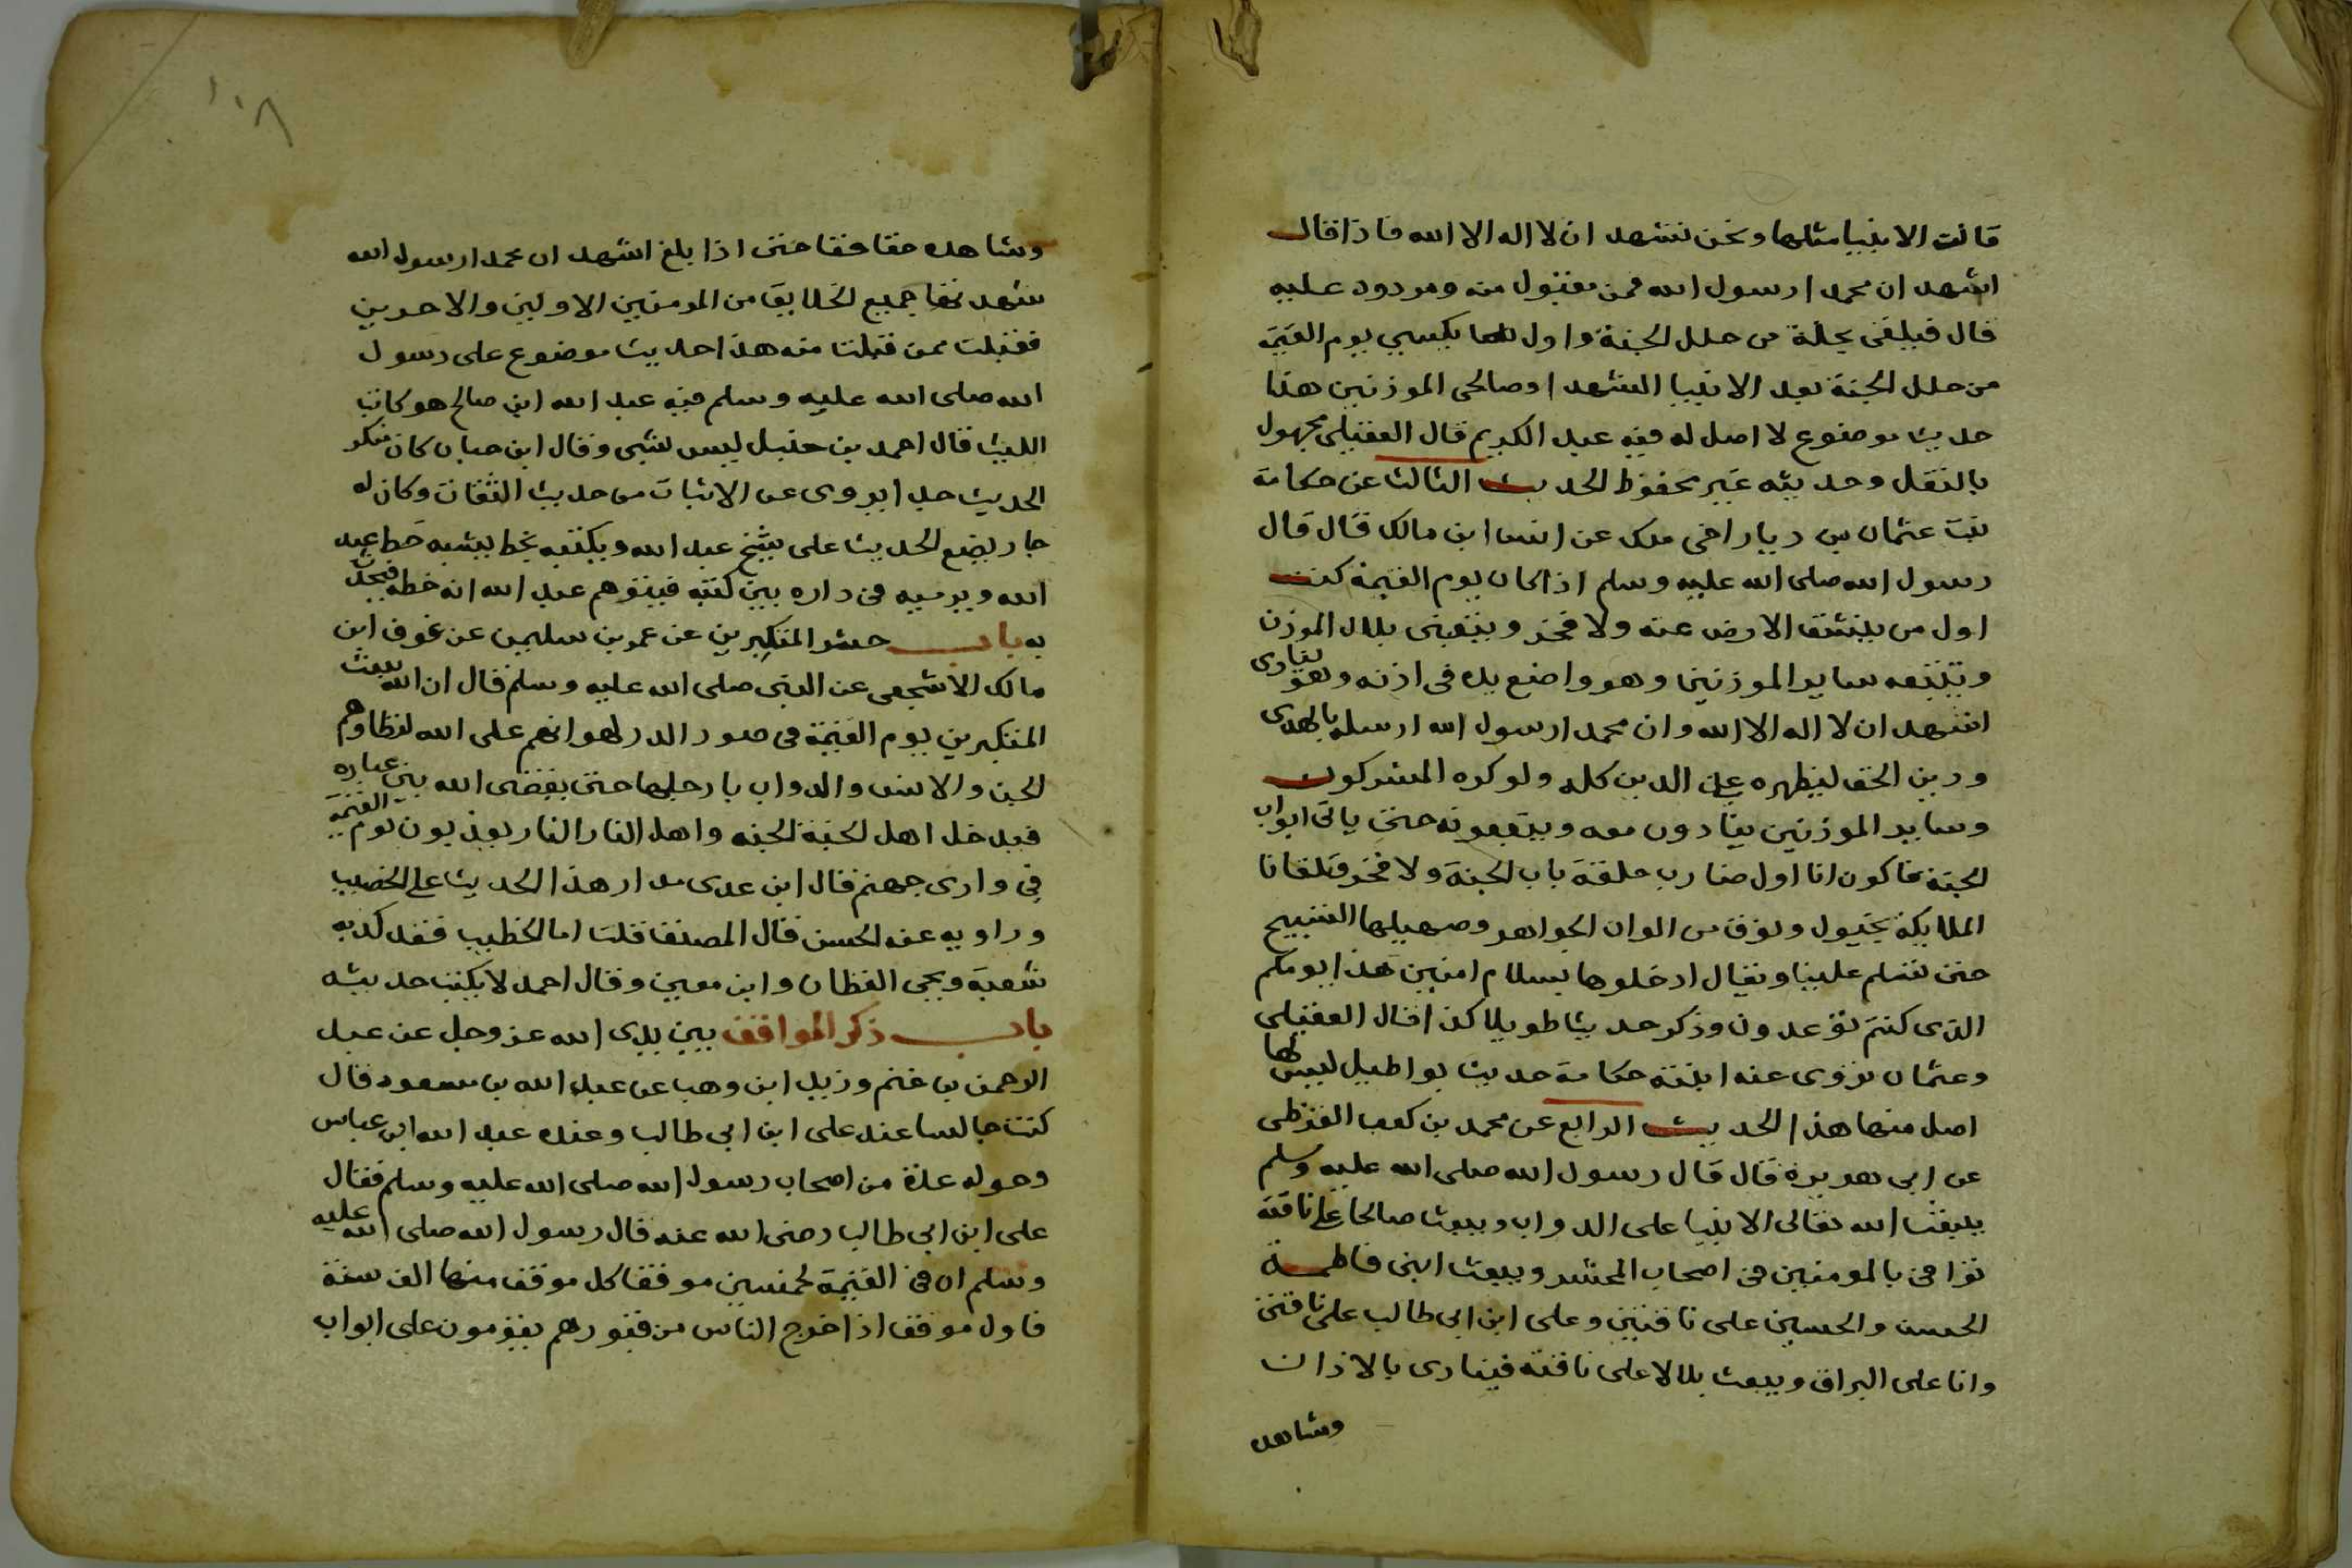 قالت الانبيا مثلها ونحن نشهد ان لا اله الا الله فاذا قال
اشهد ان محمدا رسول الله فمن مقبول منه ومردود عليه
قال فيلقى بحلة من حلل الجنة واول ما يكسي يوم القيمة
من حلل الجنة بعد الانبيا الشهدا وصالحى الموذنين هذا
حديث موضوع لا اصل له فيه عبد الكريم قال العقيلى مجهول
بالنقل وحديثه غير محفوظ الحديث الثالث عن حكامة
بنت عثمان بن دينار اخى ملك عن انس ابن مالك قال قال
رسول الله صلى الله عليه وسلم اذا كان يوم القيمة كنت
اول من ينشق الارض عنه ولا فخر ويتبعنى بلال الموذن
ويتبعه ساير الموذنين وهو واضع يده فى اذنه وهو ينادى
اشهد ان لا اله الا الله وان محمدا رسول الله ارسله بالهدى
ودين الحق ليظهره على الدين كله ولو كره المشركون
وساير الموذنين ينادون معه ويتبعونه حتى ياتى ابواب
الجنة فاكون انا اول ضارب حلقة باب الجنة ولا فخر فتلقانا
الملايكة بخيول ونوق من الوان الجواهر وصهيلها التسبيح
حتى تسلم علينا ويقال ادخلوها بسلام امنين هذا يومكم
الذى كنتم توعدون وذكر حديثا طويلا كذا قال العقيلى
وعثمان تروى عنه ابنته حكامة حديث بواطيل ليس لها
اصل منها هذا الحديث الرابع عن محمد بن كعب القرظى
عن ابى هريرة قال قال رسول الله صلى الله عليه وسلم
يبعث الله تعالى الانبيا على الدواب ويبعث صالحا على ناقته
توافى بالمومنين فى اصحاب المحشر ويبعث ابنى فاطمة
الحسن والحسين على ناقتين وعلى ابن ابى طالب على ناقتى
وانا على البراق ويبعث بلالا على ناقته فينادى بالاذان
وشاهده
١٠٨
وشاهده حقا حقا حتى اذا بلغ اشهد ان محمدا رسول الله
شهد بها جميع الخلايق من المومنين الاولين والاخرين
فقبلت ممن قبلت منه هذا حديث موضوع على رسول
الله صلى الله عليه وسلم فيه عبد الله ابن صالح هو كاتب
الليث قال احمد بن حنبل ليس بشى وقال ابن حبان كان منكر
الحديث جدا يروى عن الاثبات من حديث الثقات وكان له
جار يضع الحديث على شيخ عبد الله ويكتبه بخط يشبه خط عبد
الله ويرميه فى داره بين كتبه فيتوهم عبد الله انه خطه فيحدث
به باب حشر المتكبرين عن عمر بن سليمن عن عوف ابن
مالك الاشجعى عن النبى صلى الله عليه وسلم قال ان الله يبعث
المتكبرين يوم القيمة فى صور الذر لهوانهم على الله تطاوهم
الجن والانس والدواب بارجلها حتى يقضى الله بين عباده
فيدخل اهل الجنة الجنه واهل النار النار يعذبون يوم القيمة
فى وادى جهنم قال ابن عدى مدار هذا الحديث على الخصيب
وراويه عنه الحسن قال المصنف قلت اما الخطيب فقد كذبه
شعبة ويحيى القطان وابن معين وقال احمد لا يكتب حديثه
باب ذكر المواقف بين يدى الله عز وجل عن عبد
الرحمن بن غنم وزيد ابن وهب عن عبد الله بن مسعود قال
كنت جالسا عند على ابن ابى طالب وعنده عبد الله ابن عباس
وحوله عدة من اصحاب رسول الله صلى الله عليه وسلم فقال
على ابن ابى طالب رضى الله عنه قال رسول الله صلى الله عليه
وسلم ان فى القيمة لخمسين موقفا كل موقف منها الف سنة
فاول موقف اذا خرج الناس من قبورهم يقومون على ابواب